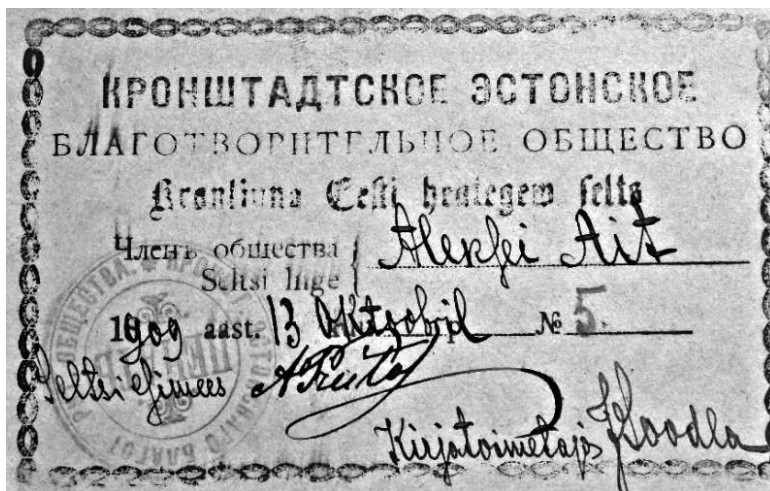 КРОНШТАДТСКОЕ ЭСТОНСКОЕ
БЛАГОТВОРИТЕЛЬНОЕ ОБЩЕСТВО
Kronlinna Eesti healegew selts
Членъ общества
Seltsi liige
Aleksei Ait
1909 aast. 13 Oktoobril № 5.
Seltsi Esimees
Kirjatoimetaja JKoodla